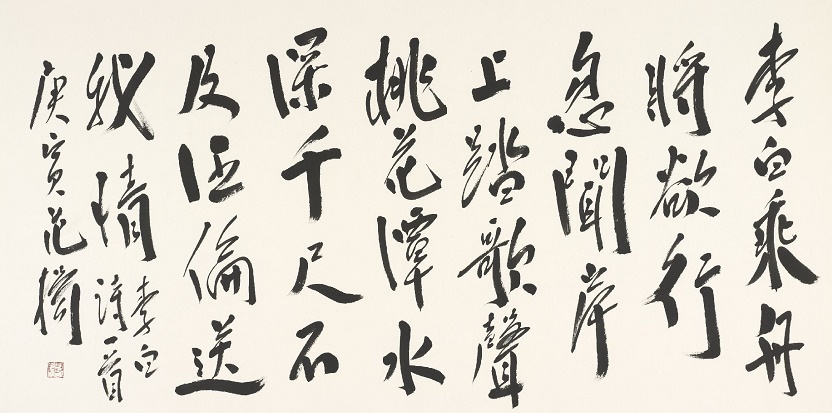 李白乘舟
將欲行
忽聞岸
上踏歌聲
桃花潭水
深千尺不
及汪倫送
我情
李白
詩一首
庚寅范